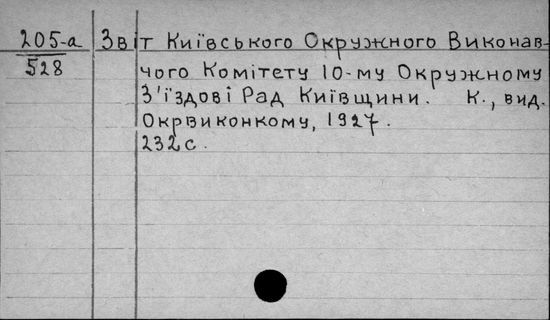 205-а Звіт Київського Окружного Виконав-
528 чого Комітету 10-му Окружному
З'їздові Рад Київщини. К., вид.
Окрвиконкому, 1927.
232с.